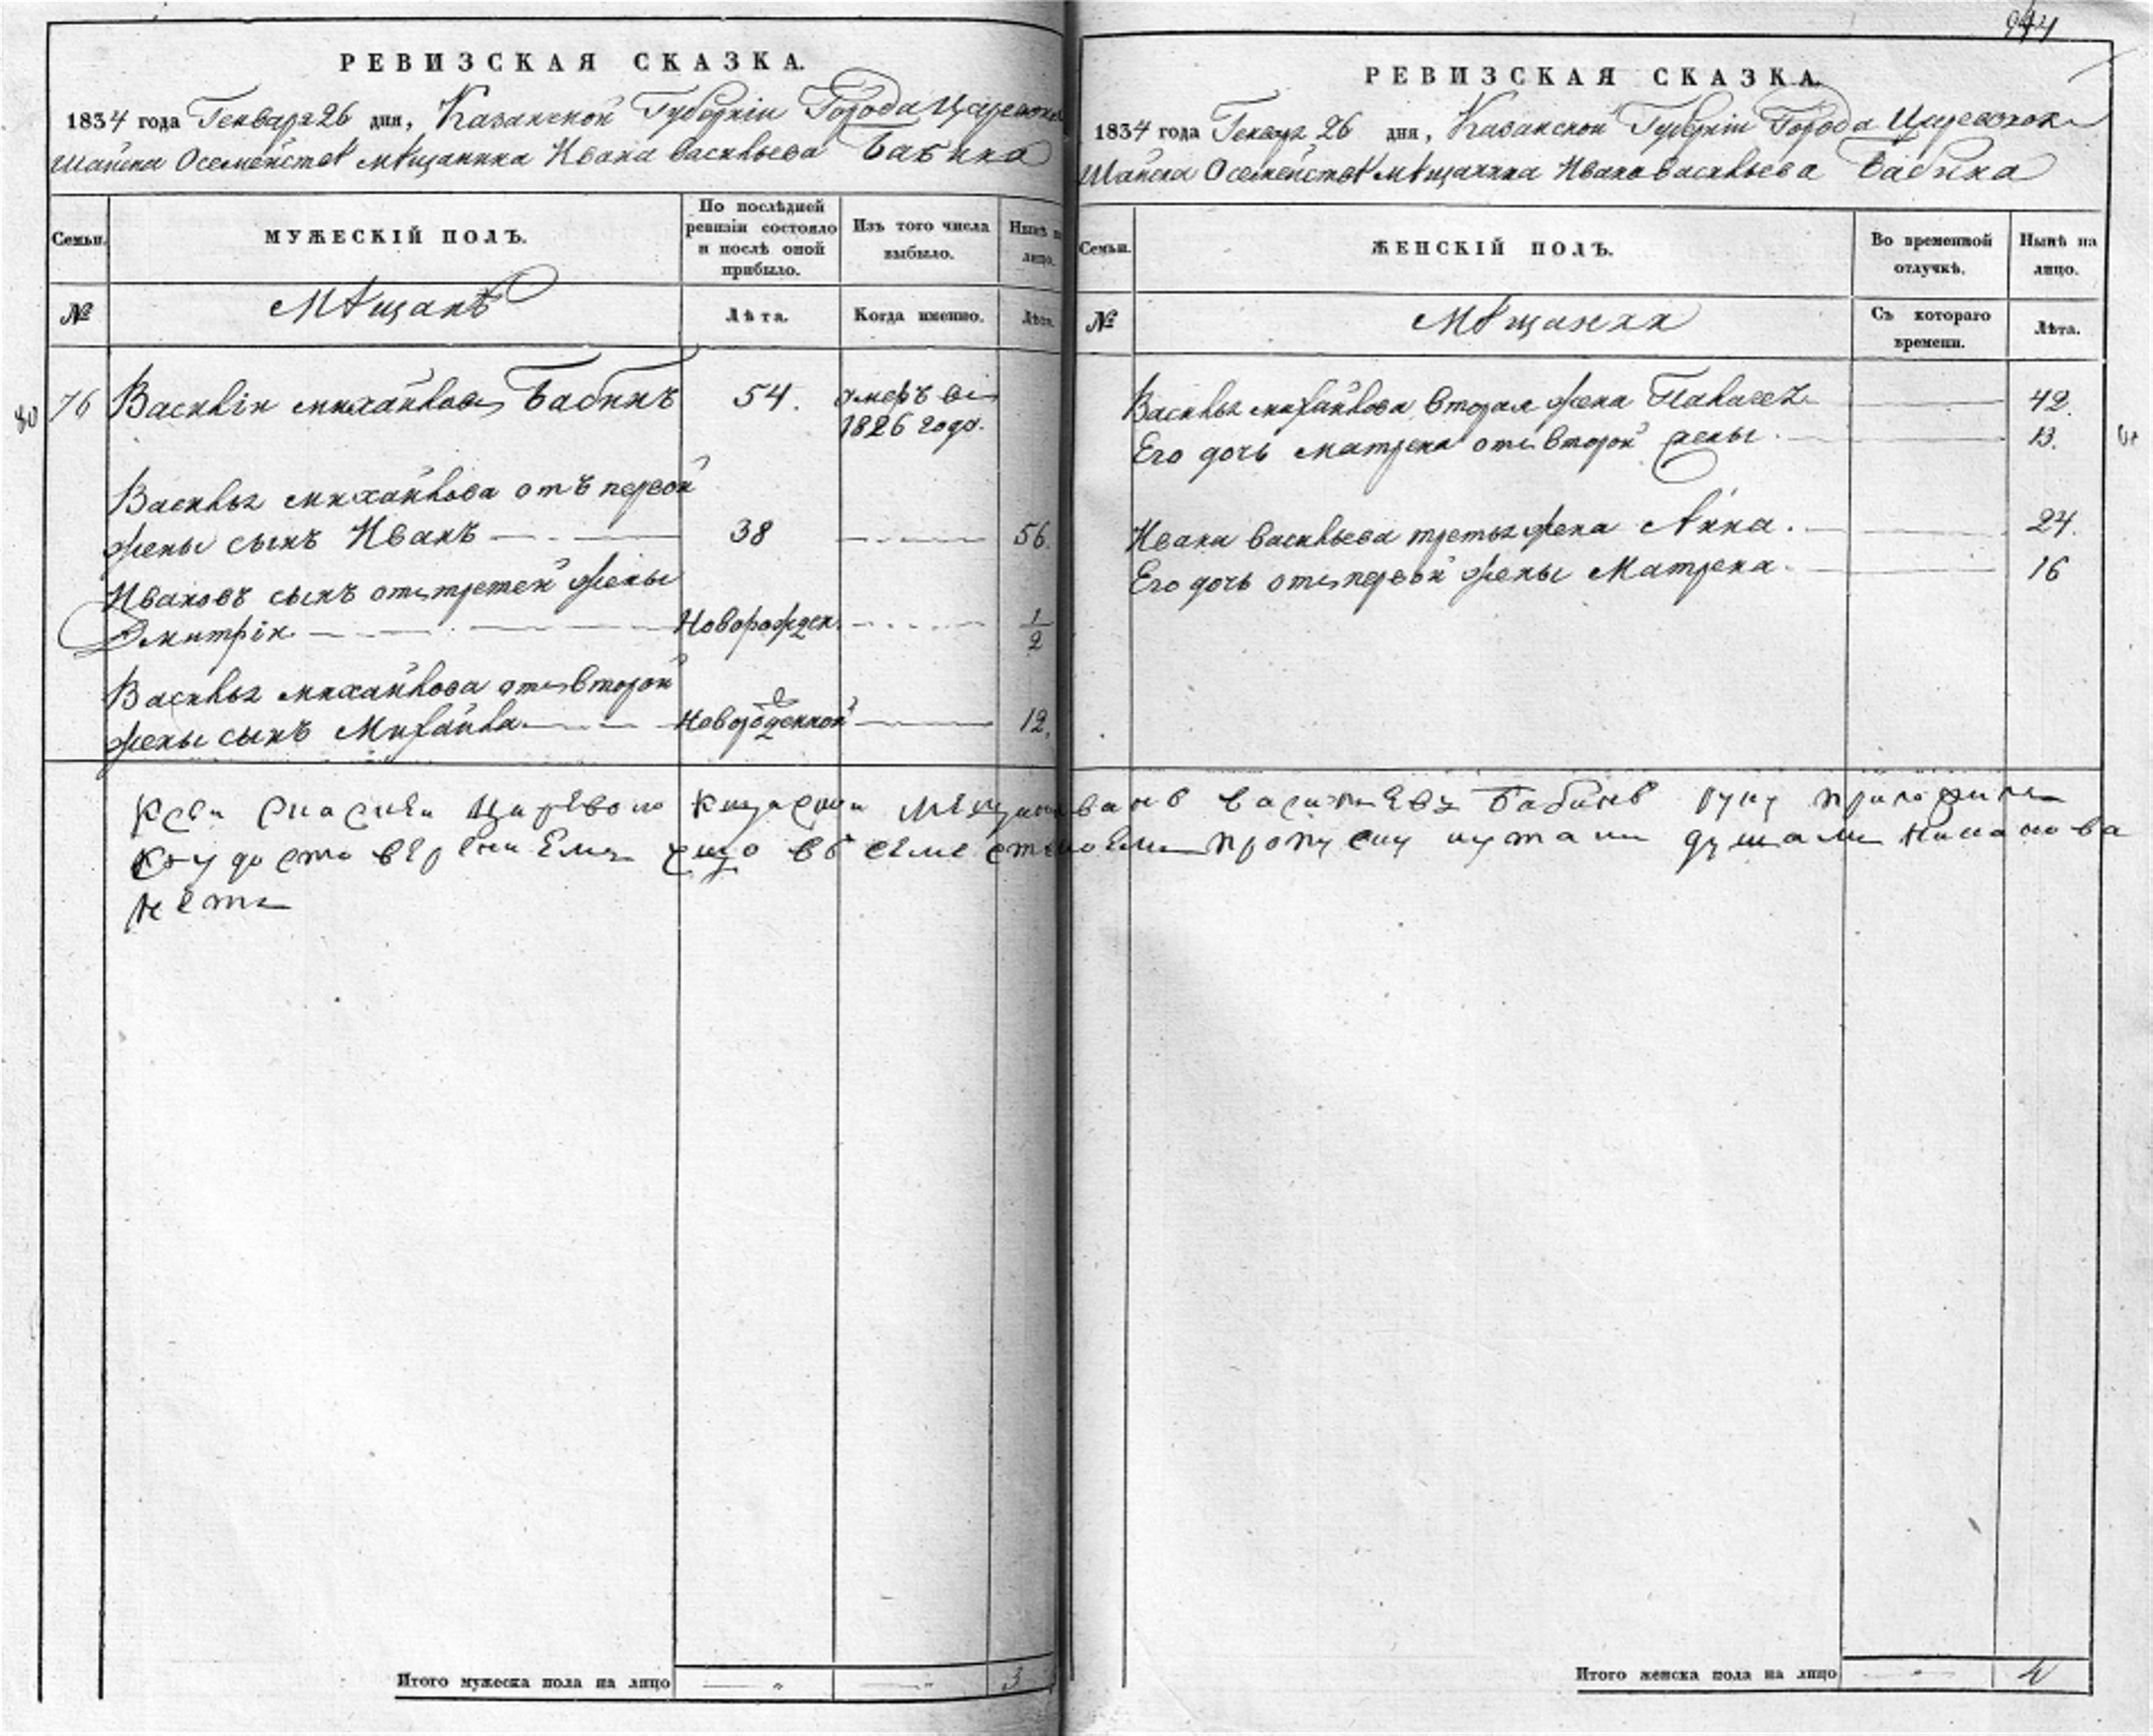 РЕВИЗСКАЯ СКАЗКА.
1834 года Генваря 26 дня, Казанской Губерніи Города Царевокок
шайска Осемействѣ мѣщанина Ивана Васильева Бабина
Семьи.
МУЖЕСКІЙ ПОЛЪ.
По послѣдней ревизіи состояло и послѣ оной прибыло.
Изъ того числа выбыло.
Нынѣ на лицо.
№
Мѣщанъ
Лѣта.
Когда именно.
Лѣта.
80
76 Василіи михайловъ Бабинъ 54. умеръ въ
1826 годе.
Василья михайлова отъ первой
жены сынъ Иванъ 38 56.
Ивановъ сынъ отъ третей жены
Дмитріи Новорожден. 1/2
Василья михайлова отъ второй
жены сынъ Михайла Новорожденной 12.
Итого мужеска пола на лицо 3
944
РЕВИЗСКАЯ СКАЗКА.
1834 года Генваря 26 дня, Казанской Губерніи Города Царевокок
шайска Осемействѣ мѣщанина Ивана Васильева Бабина
Семьи.
ЖЕНСКІЙ ПОЛЪ.
Во временной отлучкѣ.
Нынѣ на лицо.
№
Мѣщанки
Съ котораго времени.
Лѣта.
Василья михайлова вторая жена 42.
Его дочь матрена отъ второй жены. 13.
Ивана васильева третья жена Анна. 24.
Его дочь отъ первой жены Матрена. 16
ксеи скаскеи царево кокшаски мещанин иванъ василевъ Бабинъ руку приложилъ
что въ семестве моемъ пропуску утаки душамъ никакова
нетъ
Итого женска пола на лицо 4